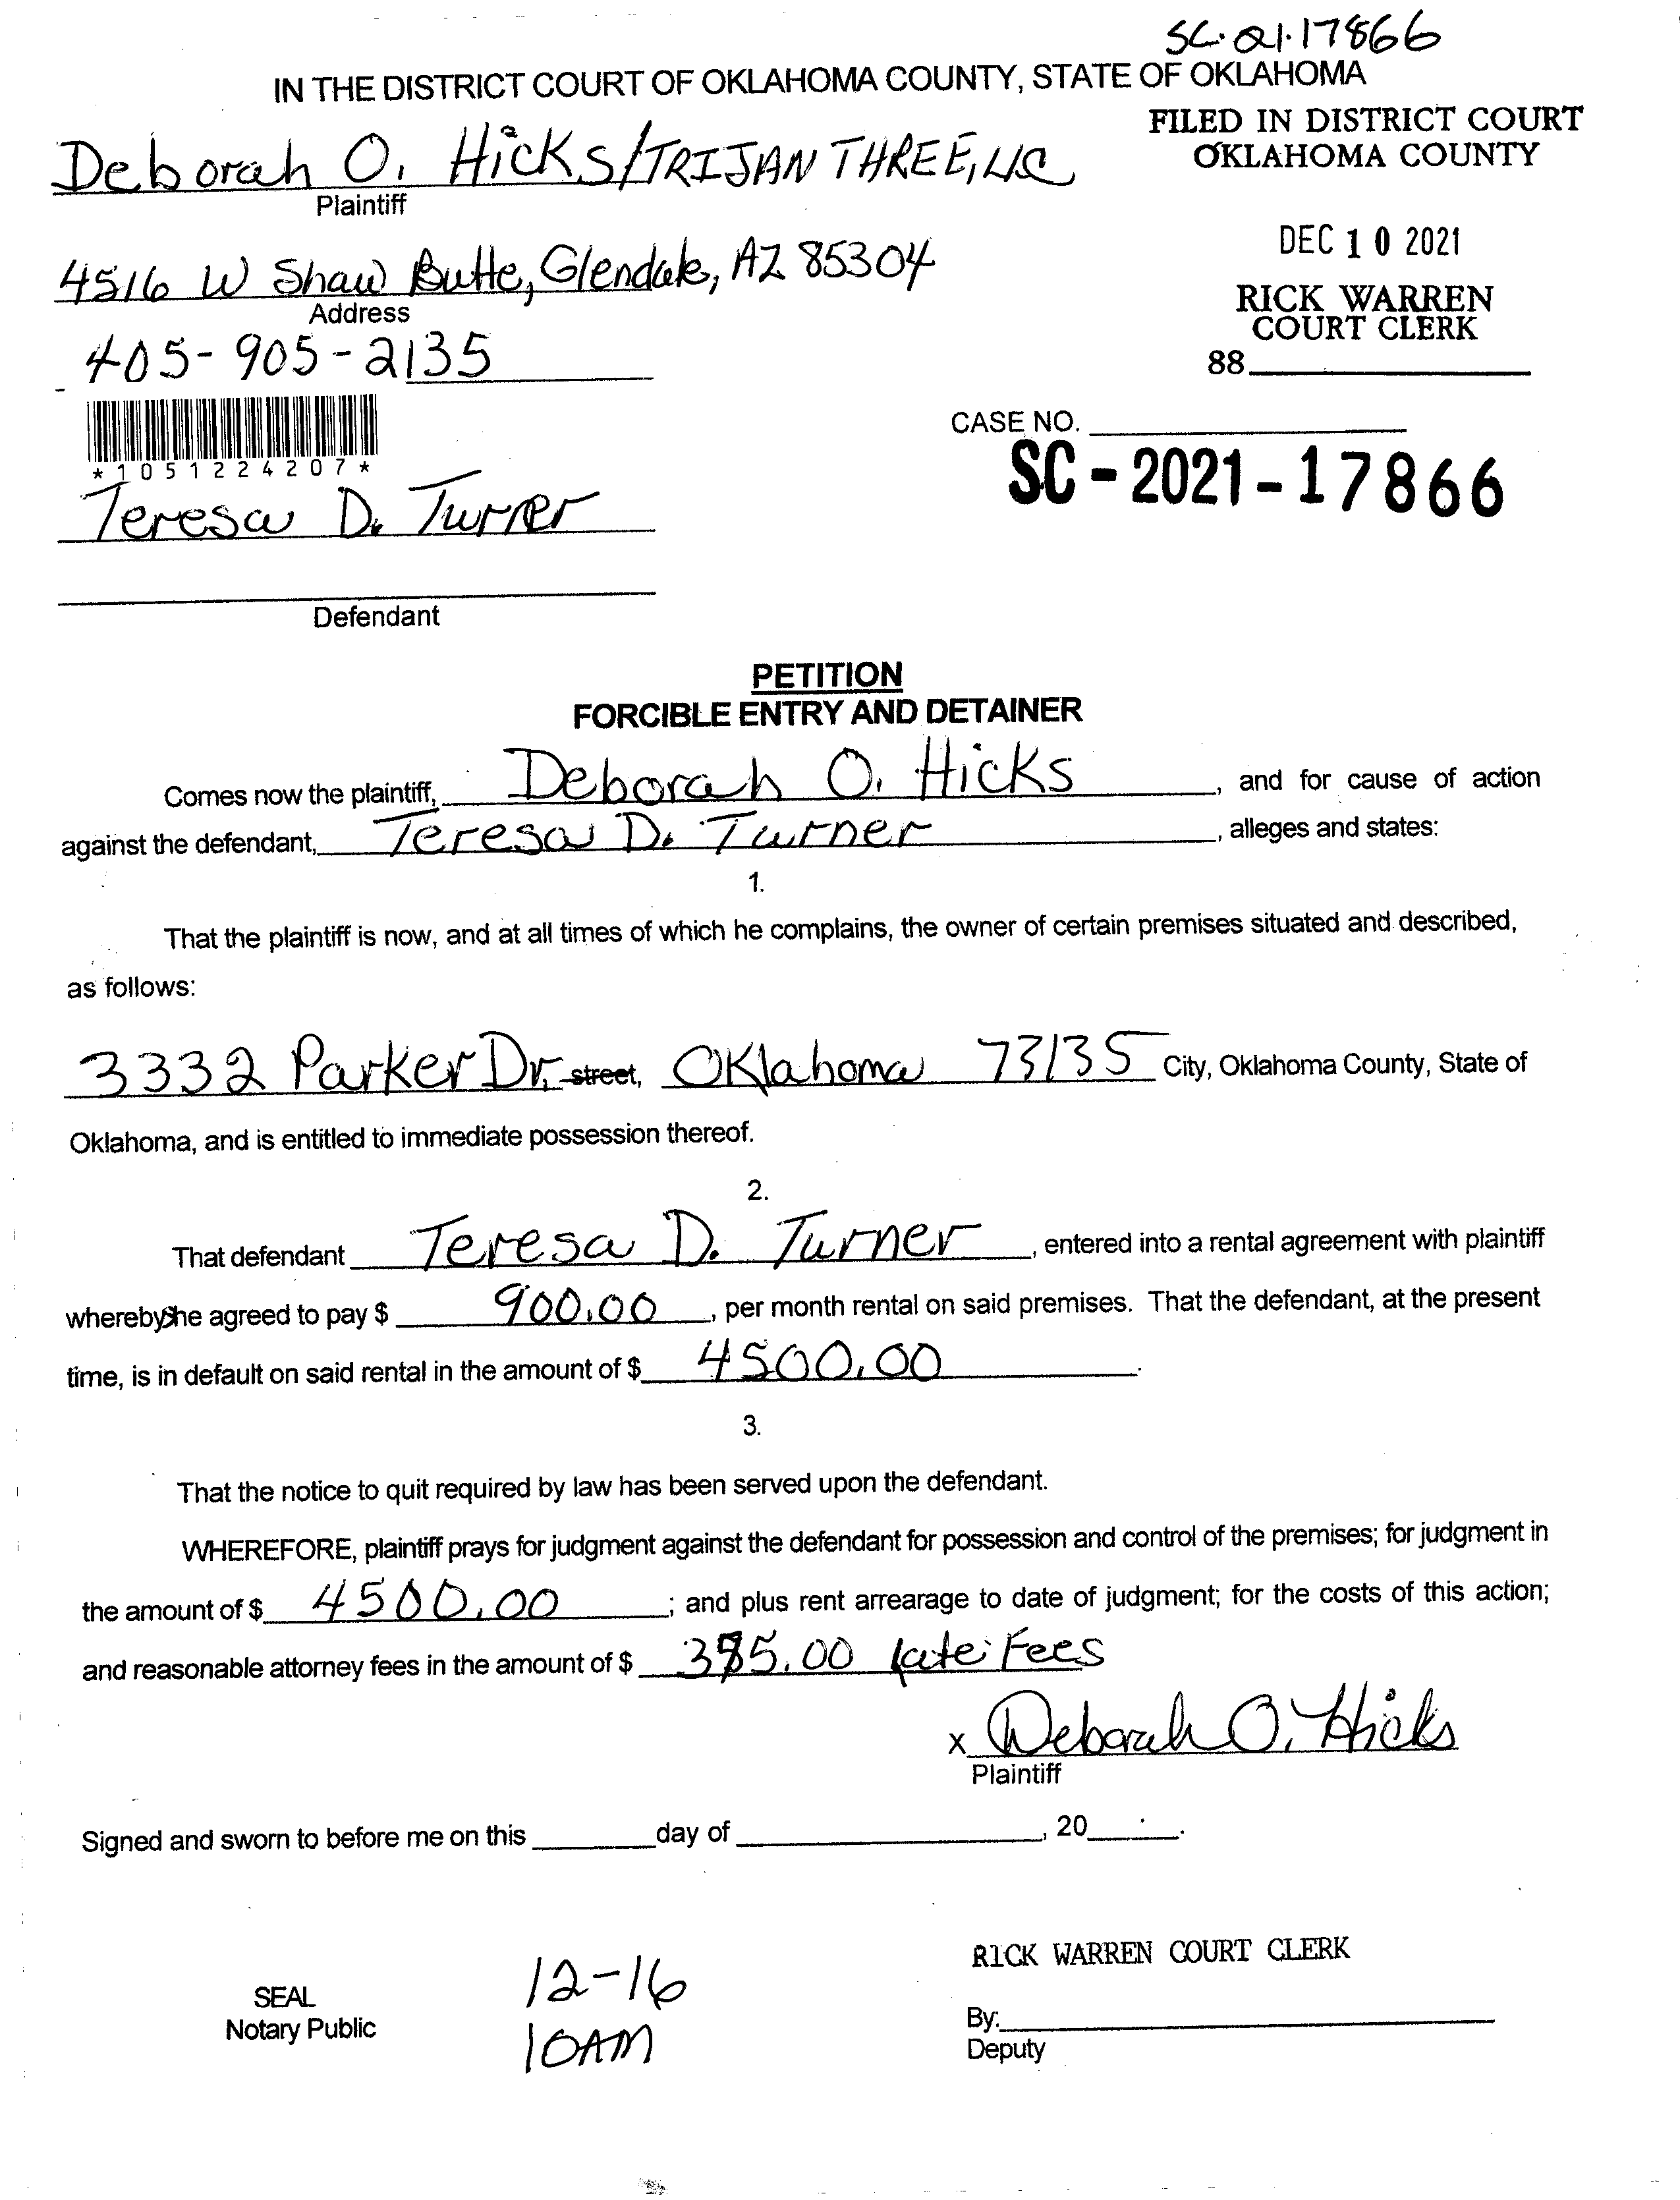 SC.21.17866
IN THE DISTRICT COURT OF OKLAHOMA COUNTY, STATE OF OKLAHOMA
FILED IN DISTRICT COURT
OKLAHOMA COUNTY
Deborah O. Hicks/TRIJAN THREE, LLC
Plaintiff
DEC 10 2021
4516 W Shaw Butte, Glendale, AZ 85304
Address
RICK WARREN
COURT CLERK
405-905-2135
88
CASE NO.
*1051224207*
SC-2021-17866
Teresa D. Turner
Defendant
PETITION
FORCIBLE ENTRY AND DETAINER
Comes now the plaintiff, Deborah O. Hicks, and for cause of action
against the defendant, Teresa D. Turner, alleges and states:
1.
That the plaintiff is now, and at all times of which he complains, the owner of certain premises situated and described,
as follows:
3332 Parker Dr. street, Oklahoma 73135 City, Oklahoma County, State of
Oklahoma, and is entitled to immediate possession thereof.
2.
That defendant Teresa D. Turner, entered into a rental agreement with plaintiff
whereby she agreed to pay $ 900.00, per month rental on said premises. That the defendant, at the present
time, is in default on said rental in the amount of $ 4500.00.
3.
That the notice to quit required by law has been served upon the defendant.
WHEREFORE, plaintiff prays for judgment against the defendant for possession and control of the premises; for judgment in
the amount of $ 4500.00; and plus rent arrearage to date of judgment; for the costs of this action;
and reasonable attorney fees in the amount of $ late Fees
x Deborah O. Hicks
Plaintiff
Signed and sworn to before me on this day of , 20 .
RICK WARREN COURT CLERK
SEAL
Notary Public
12-16
10AM
By:
Deputy